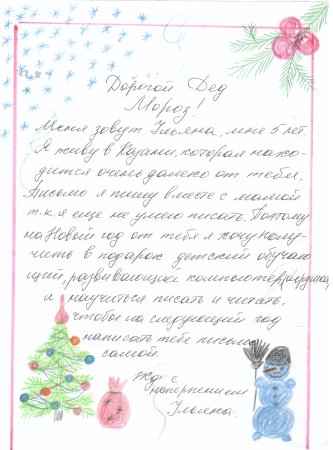 Дорогой Дед
Мороз!
Меня зовут Ульяна, мне 5 лет.
Я живу в Казани, которая нахо-
дится очень далеко от тебя.
Письмо я пишу вместе с мамой
т.к. я еще не умею писать. Поэтому
на Новый год от тебя я хочу полу-
чить в подарок детский обучаю
щий, развивающий компьютер,
и научиться писать и читать,
чтобы на следующий год
написать тебе письмо
самой.
Жду с
нетерпением
Ульяна.